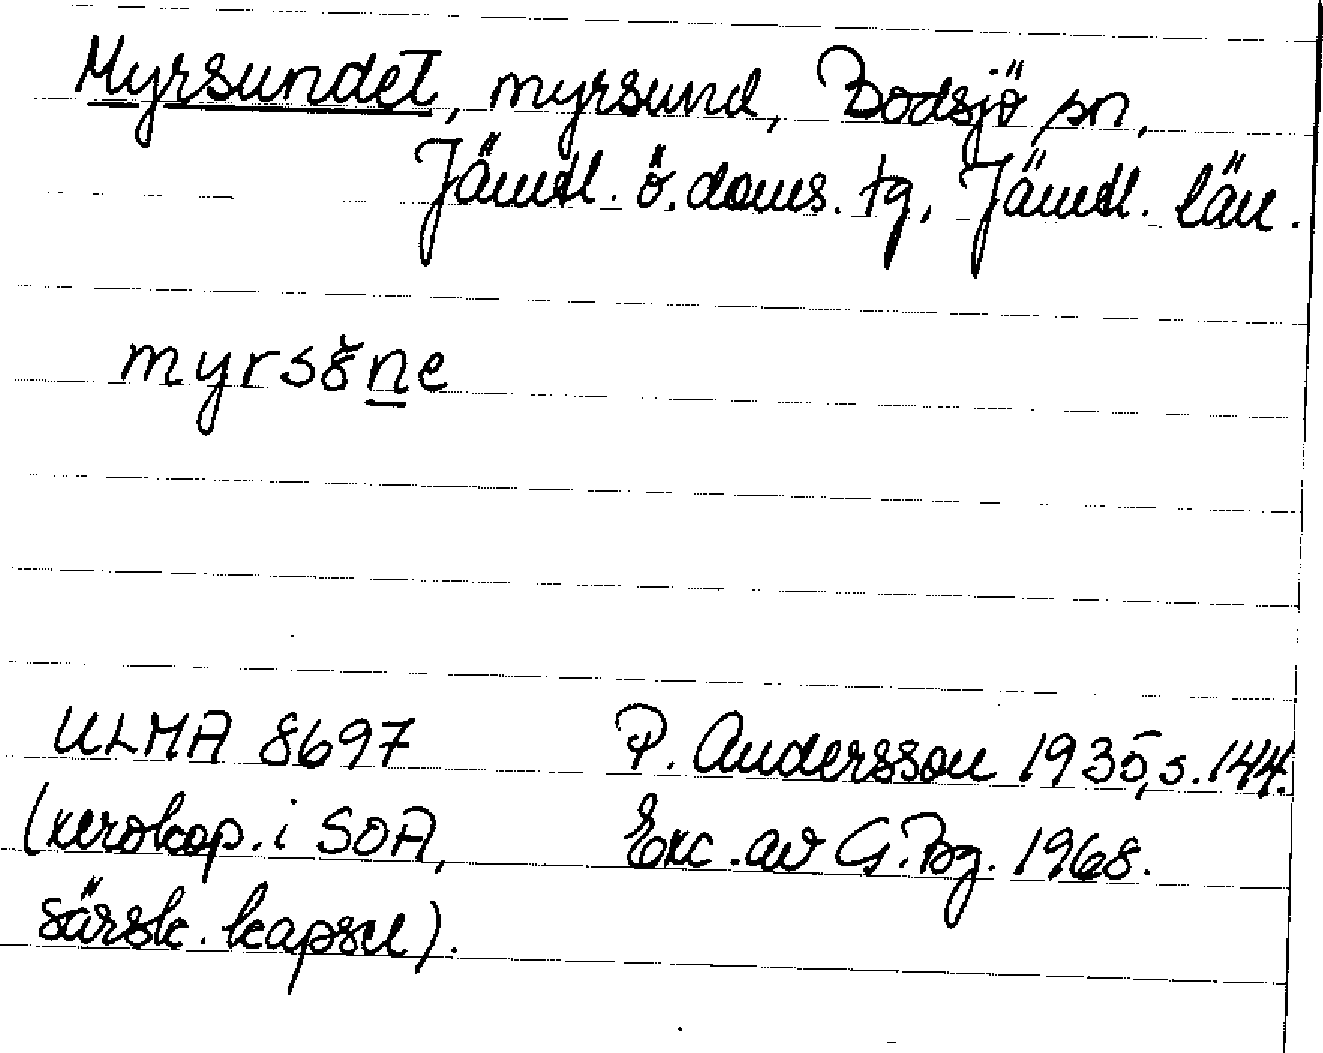 Myrsundet, myrsund, Bodsjö sn,
Jämtl. ö. doms. tg, Jämtl. län.
myrsø̆ne
ULMA 8697 P. Andersson 1935, s. 144.
(xerokop. i SOA, Exc. av G. Bg. 1968.
särsk. kapsel).